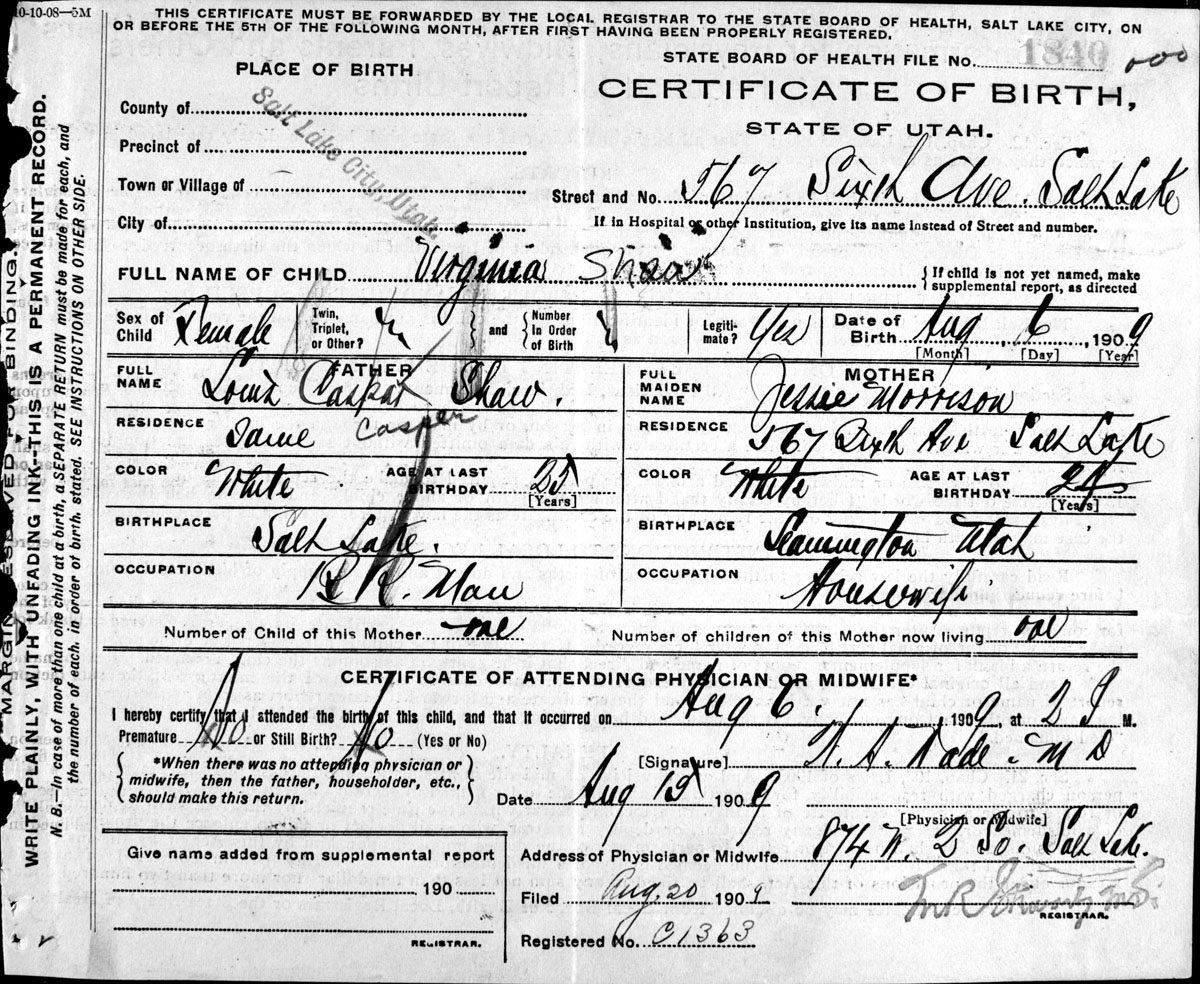 10-10-08—5M
THIS CERTIFICATE MUST BE FORWARDED BY THE LOCAL REGISTRAR TO THE STATE BOARD OF HEALTH, SALT LAKE CITY, ON
OR BEFORE THE 5TH OF THE FOLLOWING MONTH, AFTER FIRST HAVING BEEN PROPERLY REGISTERED.
STATE BOARD OF HEALTH FILE No. 1840 000
PLACE OF BIRTH
CERTIFICATE OF BIRTH,
STATE OF UTAH.
County of
Precinct of
Town or Village of
City of
Salt Lake City, Utah.
Street and No. 567 Sixth Ave. Salt Lake
If in Hospital or other Institution, give its name instead of Street and number.
FULL NAME OF CHILD Virginia Shaw
If child is not yet named, make
supplemental report, as directed
Sex of Child Female
Twin, Triplet, or Other?
and
Number In Order of Birth
Legitimate? Yes
Date of Birth Aug 6, 1909
[Month] [Day] [Year]
FATHER
FULL NAME Louis Caspar Shaw.
Casper
RESIDENCE Same
COLOR White
AGE AT LAST BIRTHDAY 25
[Years]
BIRTHPLACE Salt Lake.
OCCUPATION R. R. Man
MOTHER
FULL MAIDEN NAME Jessie Morrison
RESIDENCE 567 Sixth Ave Salt Lake
COLOR White
AGE AT LAST BIRTHDAY
[Years]
BIRTHPLACE Leamington Utah
OCCUPATION Housewife
Number of Child of this Mother one
Number of children of this Mother now living one
CERTIFICATE OF ATTENDING PHYSICIAN OR MIDWIFE*
I hereby certify that I attended the birth of this child, and that it occurred on Aug 6. 1909, at 2 M.
Premature No or Still Birth? No (Yes or No)
*When there was no attending physician or
midwife, then the father, householder, etc.,
should make this return.
[Signature] Wade M D
Date Aug 15 1909
[Physician or Midwife]
Give name added from supplemental report
190
REGISTRAR.
Address of Physician or Midwife 874 W. 2 So. Salt Lake.
Filed Aug. 20 1909
REGISTRAR.
Registered No. C1363
MARGIN RESERVED FOR BINDING.
WRITE PLAINLY, WITH UNFADING INK--THIS IS A PERMANENT RECORD.
N. B.—In case of more than one child at a birth, a SEPARATE RETURN must be made for each, and
the number of each, in order of birth, stated. SEE INSTRUCTIONS ON OTHER SIDE.